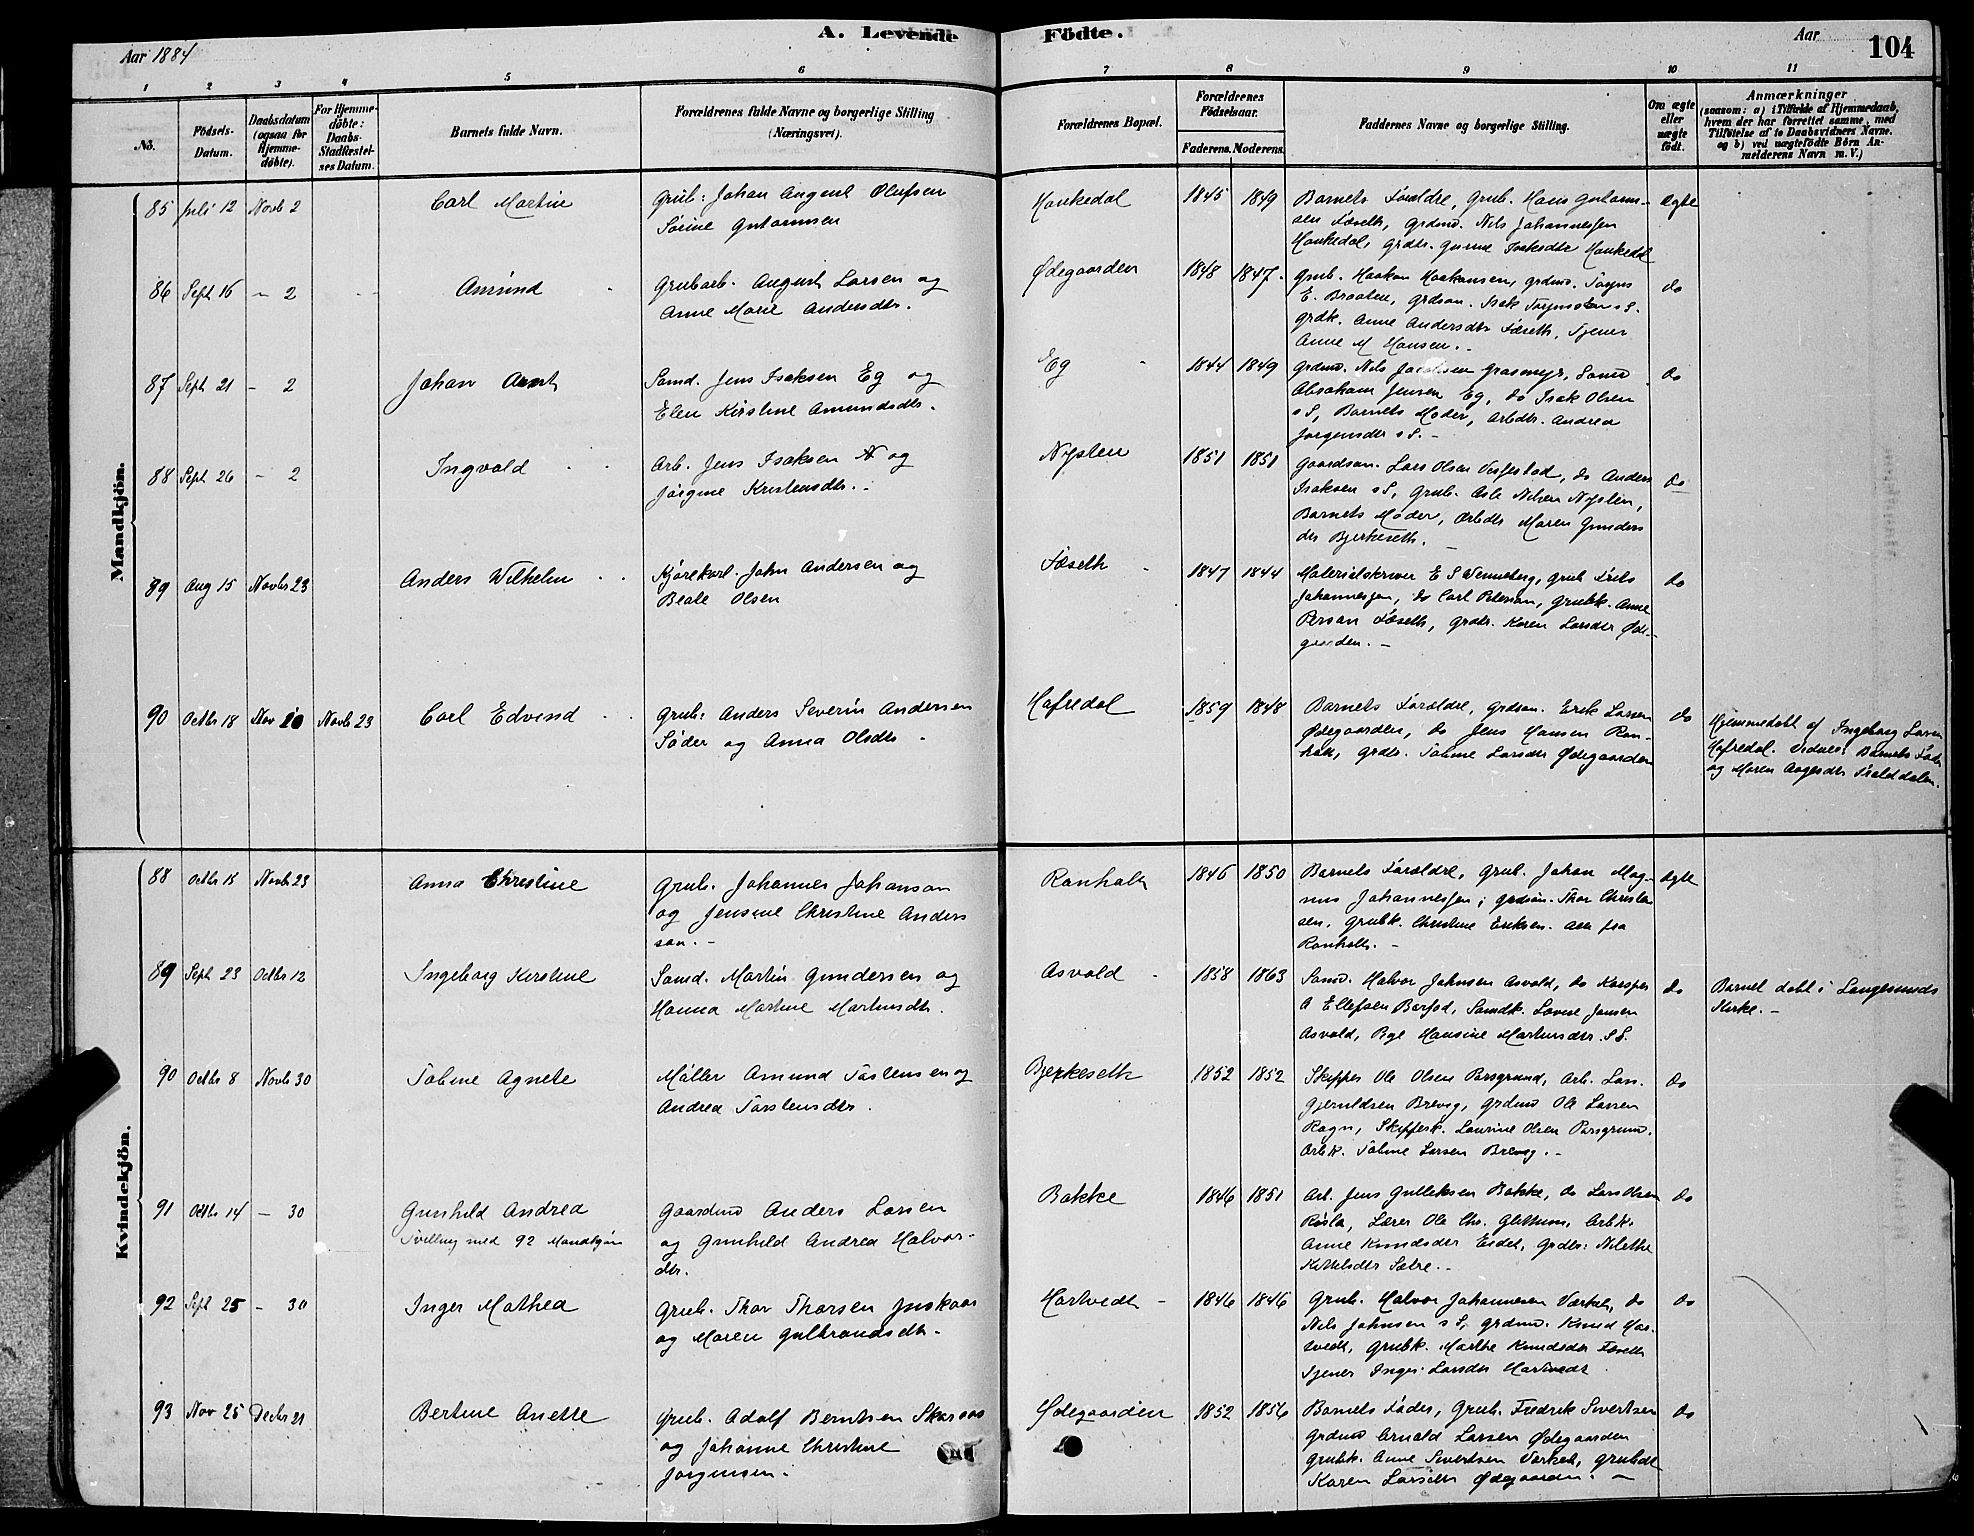 A. Levende Födte.
Aar 1884
Aar
104
1 2 3 4 5 6 7 8 9 10 11
No.
Födsels-Datum.
Daabsdatum (ogsaa for Hjemme-döbte).
For Hjemme-döbte: Daabs-Stadfæstel-ses Datum.
Barnets fulde Navn.
Forældrenes fulde Navne og borgerlige Stilling (Næringsvei).
Forældrenes Bopæl.
Forældrenes Födselsaar.
Faderens. Moderens.
Faddernes Navne og borgerlige Stilling.
Om ægte eller uægte födt.
Anmærkninger
(saasom: a) i Tilfælde af Hjemmedaab, hvem der har forrettet samme, med Tilföielse af to Daabsvidners Navne. og b) ved uægtefödte Börn An-melderens Navn m. V.)
Mandkjön.
85 Juli 12 Novb 2 Carl Martin
Grub: Johan August Olufsen
Sörine
1845 1849 Barnets Forældre, Grub. Hans
Föseth, Grdmd. Nils Johannessen
ægte
86 Sept 16 - 2 Amund
Grubarb. August Larsen og
Anne Marie Andersdtr.
Ødegaarden 1848 1847. Grub. Haakon Haakonsen, grdmd.
E. Braaten, grdsøn. Isak
grdk. Anne Andersdtr Föseth, Tjener
Anne M Hansen. -
do
87 Sept 21 - 2 Johan Arnt
Somd. Jens Isaksen Eg og
Elen Kirstine Amundsdtr.
Eg 1844 1849 Grdmd. Nils Jacobsen Grasmyr, Somd
Abraham Jensen Eg, do Isak Olsen
s S, Barnets Moder, Arbdtr. Andrea
Jørgensdtr s S. -
do
88 Sept 26 - 2 Ingvald
Arb. Jens Isaksen N og
Jörgine Kristensdtr.
Nysten 1851 1851 Gaardsøn. Lars Olsen do Anders
Isaksen s S, Grub. Nilsen Nysten,
Barnets Moder, Arbdtr Maren Gunders
dtr Bjerkeseth. -
do
89 Aug 15 Novbr 23 Anders Wilhelm
Kjörekarl. John Andersen og
Beate Olsen
Föseth 1847 1844 Materialskriver E S Wenneberg, grub
Johannessen, do Carl Peterson, Grubk. Anne
Person Föseth, grdtr. Karen Larsdtr Øde-
gaarden. -
do
90 Octbr 18 Nov 20 Novb 23 Carl Edvind
Grub: Anders Severin Andersen
Söder og Anna Olsdtr
Hafredal 1859 1848 Barnets Forældre, grdsøn. Erik Larsen
Ødegaarden, do Jens Hansen Ron-
holt, grdtr. Larsdtr Ødegaarden
do
Hjemmedöbt af Ingeborg Larsen
Hafredal. Barnets Fader
og Maren
Kvindekjön.
88 Octbr 18 Novbr 23 Anna Christine
Grub. Johannes Johanson
og Jensine Christine Anders
son. -
Ronholt 1846 1850 Barnets Forældre, Grub. Johan Mag-
nus Johannessen, grdsøn. Thor Christen
sen, Grubk. Christine Eriksen. alle fra
Ronholt. -
ægte
89 Sept 23 Octbr 12 Ingeborg Kirstine
Somd. Martin Gundersen og
Hanna Martine Martinsdtr.
Asvold 1858 1863 Somd. Halvor Johnsen Asvold, do Kasper
A Ellefsen Barfod, Somdk. Jensen
Asvold, Pge Hansine Martinsdtr. s S.
do
Barnet döbt i Langesunds
Kirke. -
90 Octbr 8 Novbr 30 Tobine Agnete
Möller Amund Torstensen og
Andrea Torstensdtr.
Bjerkeseth 1852 1852 Skipper Ole Olsen Porsgrund, Arb. Lars
Brevig, grdmd Ole Larsen
Rogn, Skipperk. Laurine Olsen Porsgrund.
Arbk. Tobine Larsen Brevig. -
do
91 Octbr 14 - 30 Gunhild Andrea
Tvilling med 92 Mandkjön
Gaardmd Anders Larsen
og Gunhild Andrea Halvors-
dtr.
Bakke 1846 1851 Arb. Jens Gulleksen Bakke, do
Lærer Ole Chr. Arbk.
Anne Knudsdtr grdtr:
do
92 Sept 25 - 30 Inger Mathea
Grub. Thor Thorsen
og Maren Gulbrandsdtr.
Hartvedt 1846 1846 Grub. Halvor Johannesen Værket, do
Nils Johnsen s S, grdmd. Knud Har-
tvedt, Grubk. Marthe Knudsdtr Föseth
Tjener Inger Larsdtr Hartvedt
do
93 Nov 25 Decbr 21 Bertine Anette
Grub. Adolf Berntsen
og Johanne Christine
Jørgensen.
Ødegaarden 1852 1856 Barnets Fader, Grub. Fredrik Sivertsen
grdmd Arnold Larsen Ødegaarden
Grubk. Anne Sivertsen Værket, grubdtr
Karen Larsdtr Ødegaarden. -
do